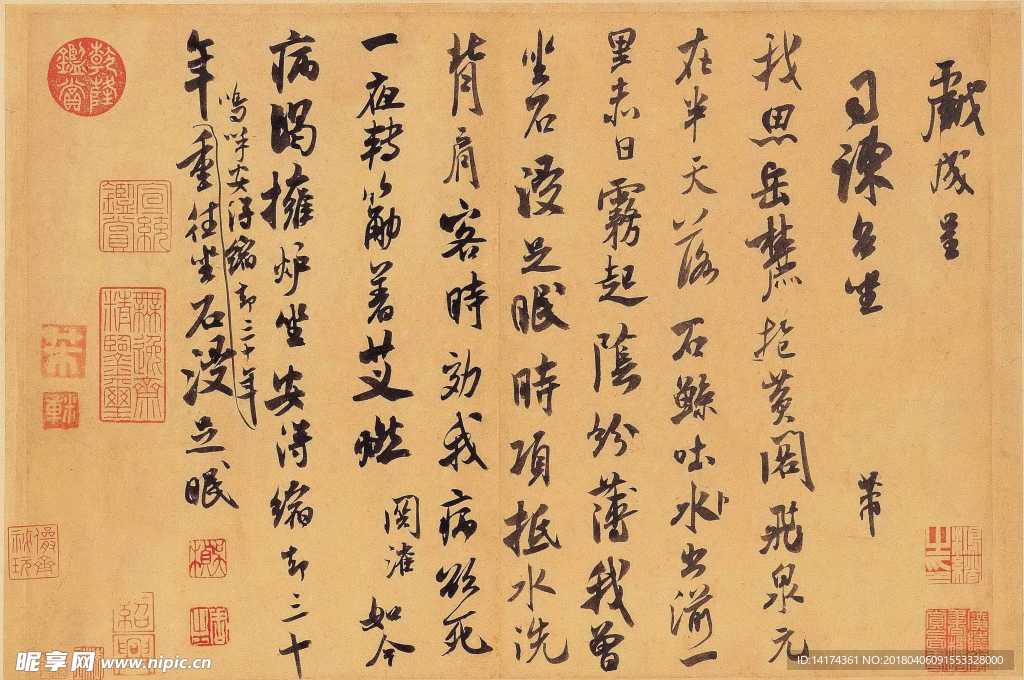 戲成呈
司諫台坐
芾
我思岳麓抱黃閣飛泉元
在半天落石鯨吐水出湔一
里赤日霧起陰紛薄我曾
坐石浸足眠時項抵水洗
背肩客時効我病欲死
一夜轉筋著艾燃
関灌
如今
病渴擁炉坐安得縮却三十
年重往坐石浸足眠
嗚呼安得縮却三十年
乾隆鑑賞
宣統鑑賞
無逸齋精鑒璽
儀齊秘玩
紹興
昵享网 www.nipic.cn
ID:14174361 NO:20180406091553328000